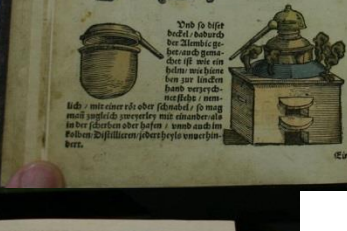 Vnd so diset
deckel / dadurch
der Alembic ge-
het / auch gema-
chet ist wie ein
helm / wie hiene
ben zur lincken
hand verzeych-
net steht / nem-
lich / mit einer rör oder schnabel / so mag
man zugleich zweyerley mit einander / als
in der scherben oder hafen / vnnd auch im
kolben Distillieren / jedertheyls vnuerhin-
dert.
(Ein